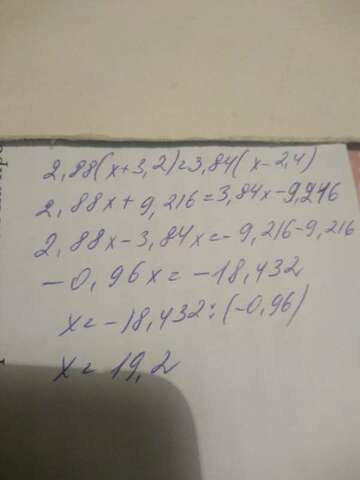 2,88(x+3,2)=3,84(x-2,4)
2,88x+9,216=3,84x-9,216
2,88x-3,84x=-9,216-9,216
-0,96x=-18,432
x=-18,432:(-0,96)
x=19,2